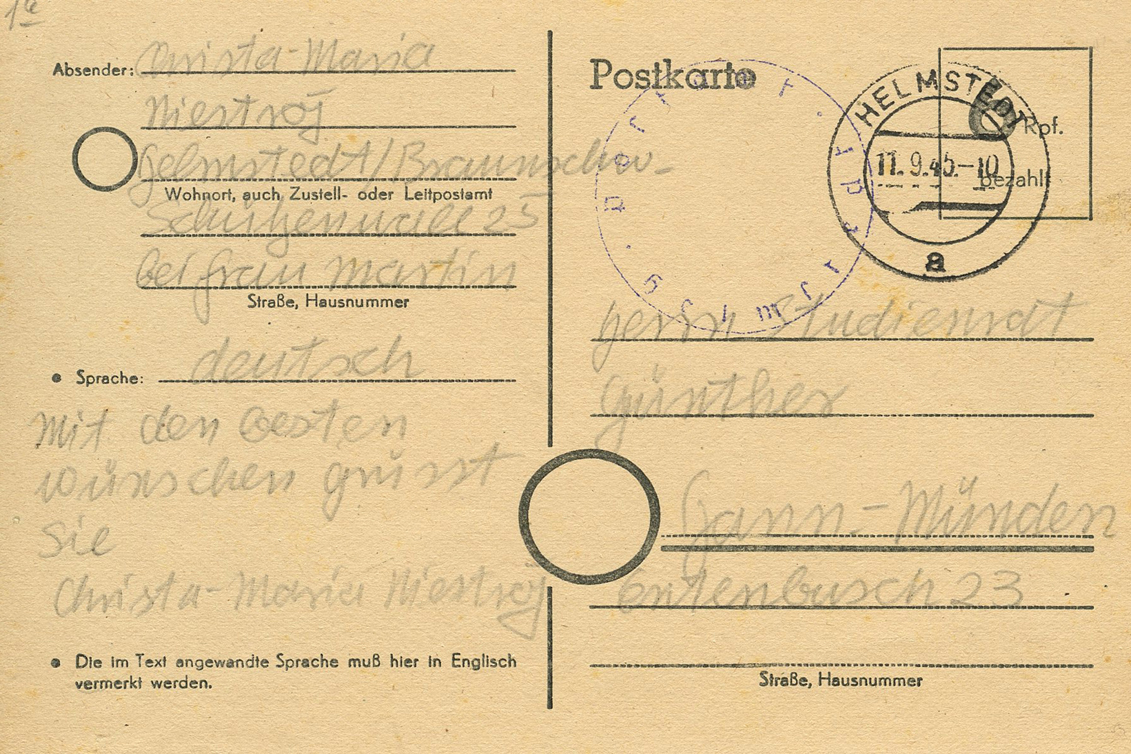 1a
Absender: Christa-Maria
Niestroj
Helmstedt/Braunschw-
Wohnort, auch Zustell- oder Leitpostamt
Schützenwall 25
bei Frau Martin
Straße, Hausnummer
• Sprache: deutsch
Mit den besten
wünschen grüsst
Sie
Christa-Maria Niestroj
• Die im Text angewandte Sprache muß hier in Englisch
vermerkt werden.
Postkarte
HELMSTEDT
11.9.45.-10
a
Rpf.
bezahlt
Herrn Studienrat
Günther
Hann-Münden
Entenbusch 23
Straße, Hausnummer